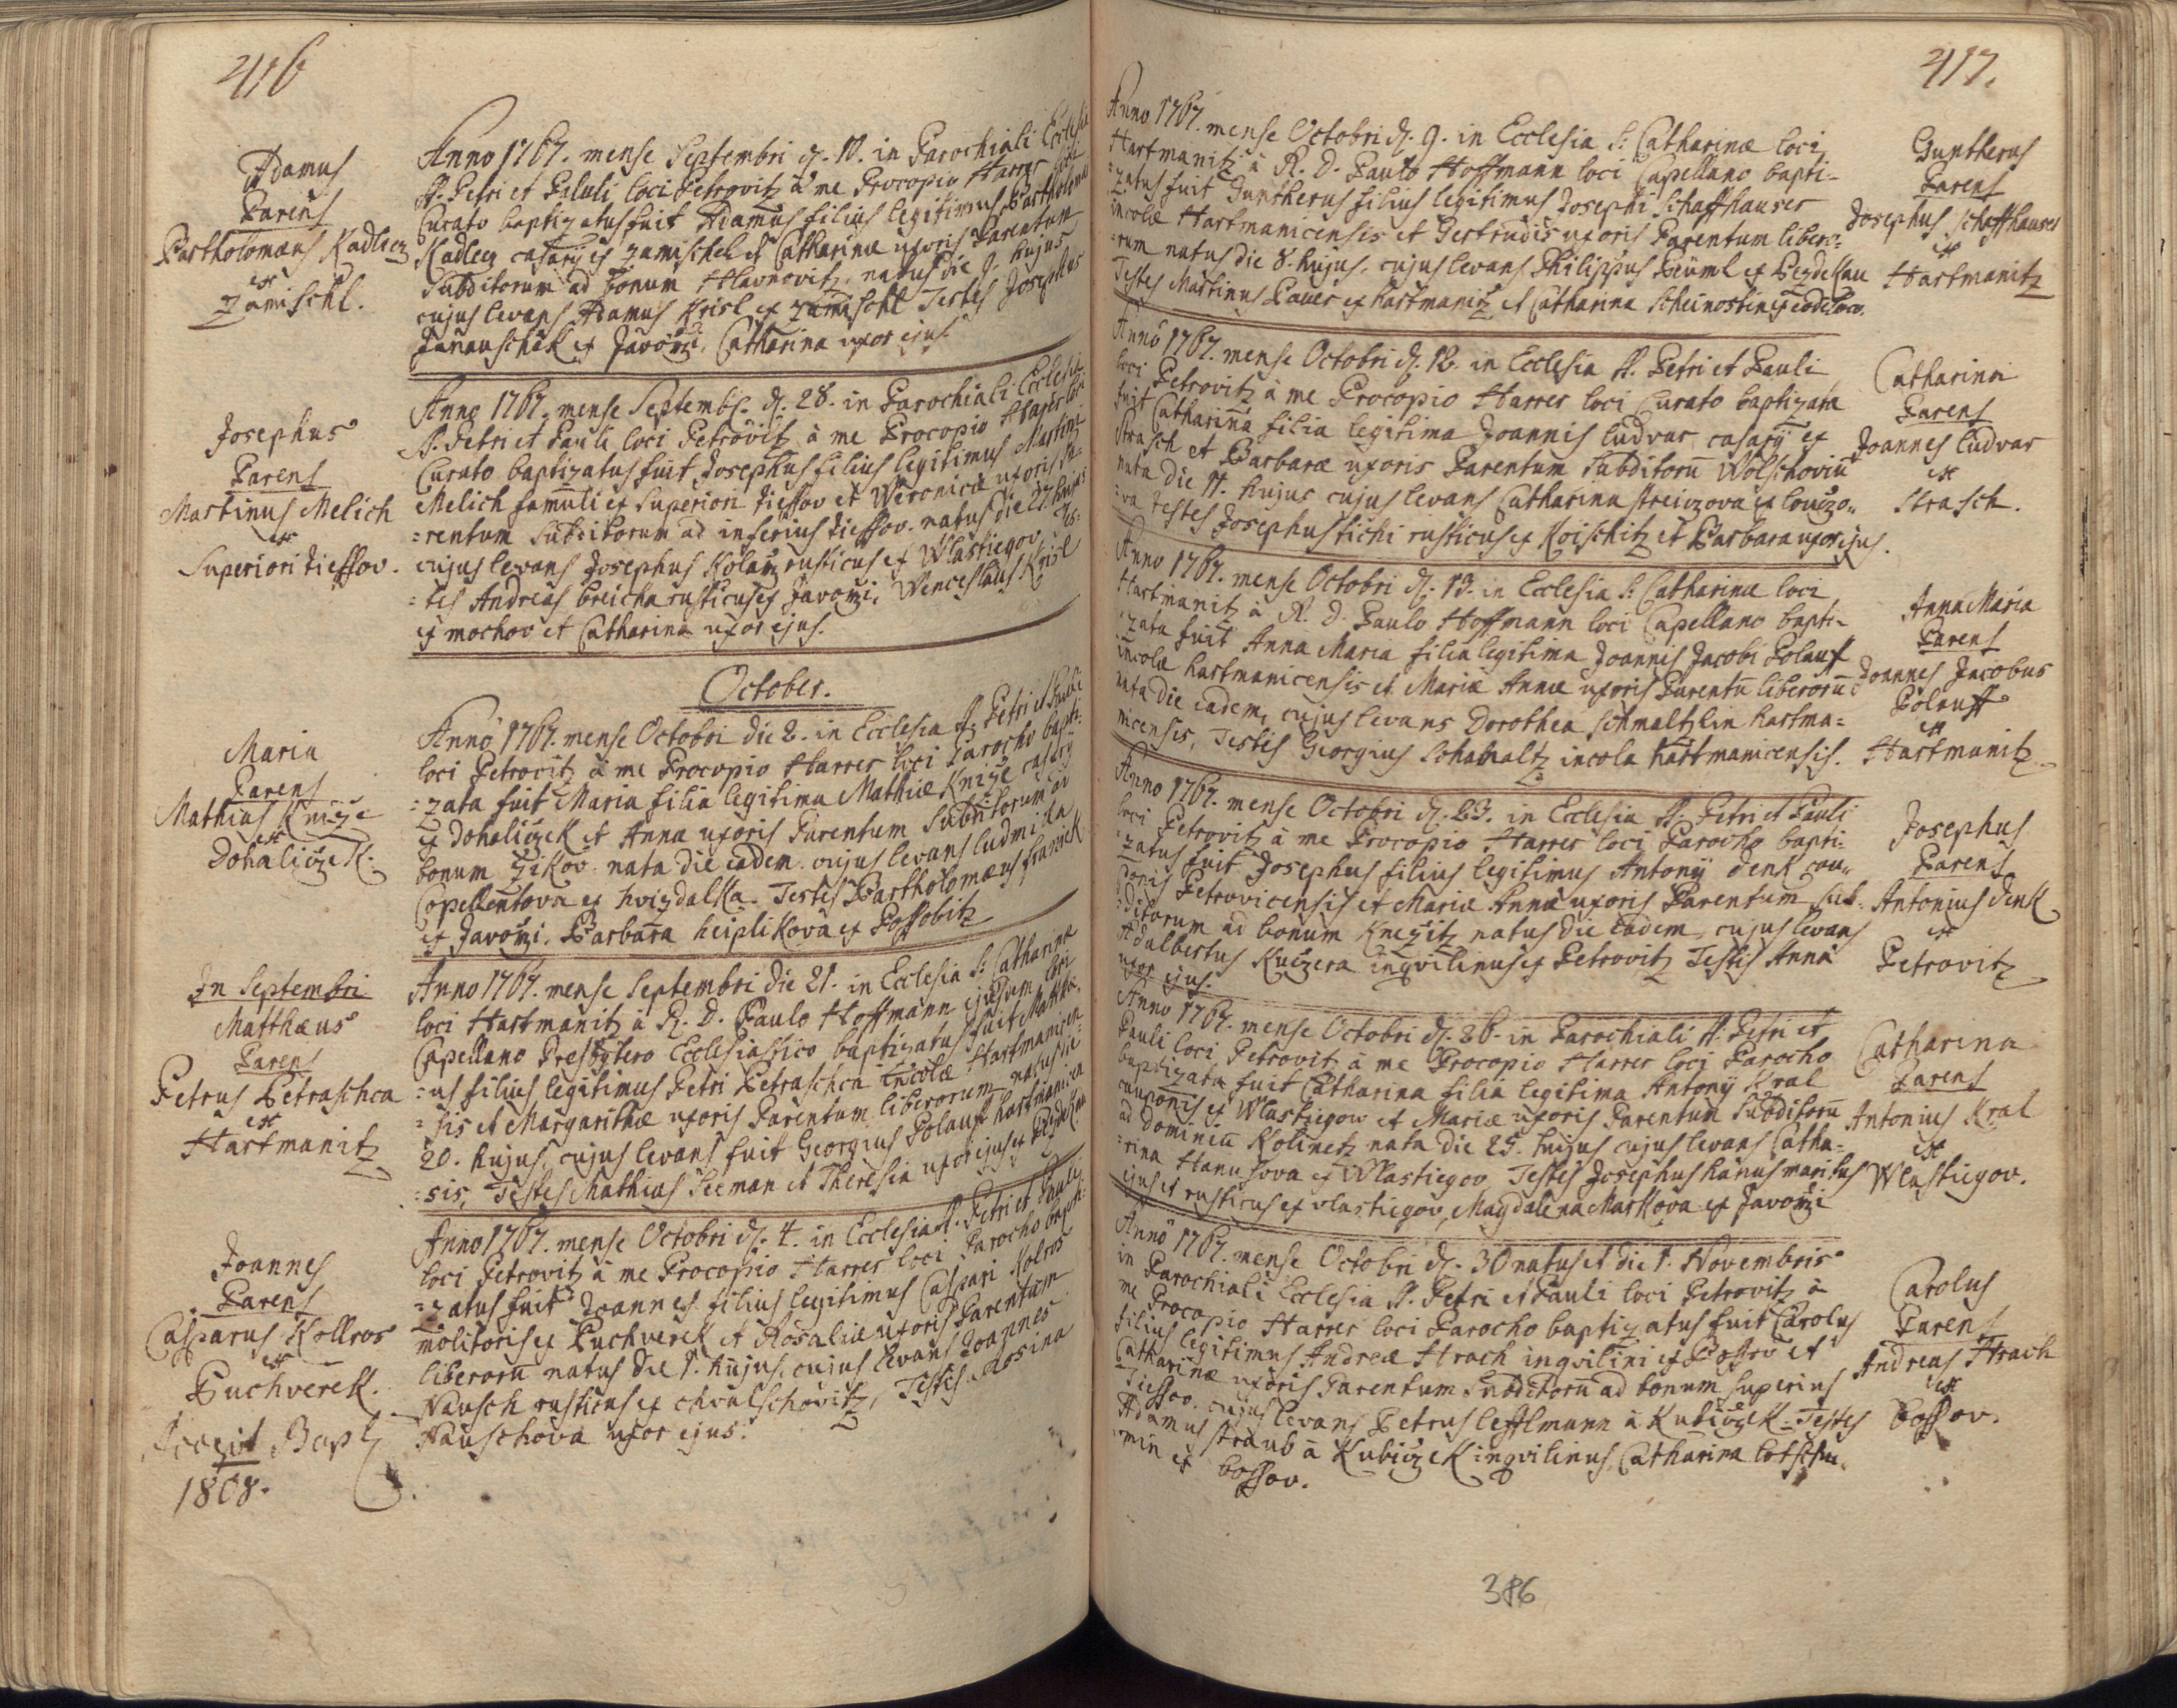 416
Adamus
Parens
Bartholomæus Kadlecz
ex
Zamischl.
Anno 1767. mense Septembri d. 10. in Parochiali Ecclesia
SS. Petri et Pauli loci Petrovitz à me Procopio Harrer loci
Curato baptizatus fuit Adamus filius legitimus Bartholomæi
Kadlecz casarij ex Zamischel et Catharinæ uxoris Parentum
Subditorum ad bonum Hlavnovitz, natus die 9. hujus
cujus levans Adamus Krisl ex Zamischl Testes Josephus
Janauschek ex Javorzi, Catharina uxor ejus.
Josephus
Parens
Martinus Melich
ex
Superiori Tieschov.
Anno 1767. mense Septemb. d. 28. in Parochiali Ecclesia
SS. Petri et Pauli loci Petrovitz à me Procopio Harrer loci
Curato baptizatus fuit Josephus filius legitimus Martini
Melich famuli ex Superiori Tieschov et Weronicæ uxoris Pa-
=rentum Subditorum ad inferius Tieschov. natus die 27. hujus
cujus levans Josephus Kolarz rusticus ex Wlastiegov, Tes=
=tes Andreas Breicha rusticus ex Javorzi, Wenceslaus Krisl
ex Mochov et Catharina uxor ejus.
October.
Maria
Parens
Mathias Knize
ex
Dohaliczek.
Anno 1767. mense Octobri die 2. in Ecclesia SS. Petri et Pauli
loci Petrovitz à me Procopio Harrer loci Parocho bapti=
=zata fuit Maria filia legitima Mathiæ Knize casarij
ex Dohaliczek et Anna uxoris Parentum Subditorum ad
bonum Zikov. nata die eadem. cujus levans Ludmilla
Copellentova ex Hvizdalka. Testes Bartholomæus
ex Javorzi, Barbara heiplikova ex Possobitz
In Septembri
Matthæus
Parens
Petrus Petraschca
ex
Hartmanitz
Anno 1767. mense Septembri die 21. in Ecclesia S: Catharinæ
loci Hartmanitz à R. D. Paulo Hoffmann ejusdem loci
Capellano Presbytero Ecclesiastico baptizatus fuit Matthæ=
=us filius legitimus Petri Petraschca incolæ Hartmanicen=
=sis et Margarithæ uxoris Parentum liberorum natus die
20. hujus, cujus levans fuit Georgius Polauff hartmanicen
=sis, Testes Mathias Seeman et Theresia uxor ejus ex
Joannes
Parens
Casparus Kollros
ex
Puchverek.
Accepit Bapt
1808.
Anno 1767. mense Octobri d. 4. in Ecclesia SS. Petri et Pauli
loci Petrovitz à me Procopio Harrer loci Parocho bapti=
=zatus fuit Joannes filius legitimus Caspari Kolros
molitoris ex Puchverek et Rosaliæ uxoris Parentum
liberorū natus die 1. hujus, cujus levans Joannes
Nausch rusticus ex Chvalschovitz, Testis Rosina
Nauschova uxor ejus.
417.
Anno 1767. mense Octobri d. 9. in Ecclesia S: Catharinæ loci
Hartmanitz à R. D. Paulo Hoffmann loci Capellano bapti-
=zatus fuit Guntherus filius legitimus Josephi Schaffhauser
incolæ Hartmanicensis et Gertrudis uxoris Parentum libero=
rum natus die 8. hujus. cujus levans Philippus Bäuml ex Bezdekau
Testes Martinus Pauer ex Hartmanitz et Catharina Scheinostin ex eod: loco.
Guntherus
Parens
Josephus Schaffhauser
ex
Hartmanitz
Anno 1767. mense Octobri d. 12. in Ecclesia SS. Petri et Pauli
loci Petrovitz à me Procopio Harrer loci Curato baptizata
fuit Catharina filia legitima Joannis Ludvar casarij ex
Strasch et Barbaræ uxoris Parentum Subditorū Wolschoviū
nata die 11. hujus cujus levans Catharina Streiczova ex Louczo=
=va Testes Josephus Tichi rusticus ex Koischitz et Barbara uxor ejus.
Catharina
Parens
Joannes Ludvar
ex
Strasch.
Anno 1767. mense Octobri d. 13. in Ecclesia S: Catharinæ loci
Hartmanitz à R. D. Paulo Hoffmann loci Capellano bapti-
=zata fuit Anna Maria filia legitima Joannis Jacobi Polauf
incolæ hartmanicensis et Mariæ Annæ uxoris Parentū liberorū
nata die eadem, cujus levans Dorothea Schmaltzlin hartma=
nicensis, Testis Georgius Schabaltz incola hartmanicensis.
Anna Maria
Parens
Joannes Jacobus
Polauff
ex
Hartmanitz
Anno 1767. mense Octobri d. 23. in Ecclesia SS. Petri et Pauli
loci Petrovitz à me Procopio Harrer loci Parocho bapti-
=zatus fuit Josephus filius legitimus Antonij Denk cau=
ponis Petrovicensis et Mariæ Annæ uxoris Parentum Sub=
=ditorum ad bonum Knezitz natus die eadem, cujus levans
Adalbertus Kuczera inqvilinus ex Petrovitz Testis Anna
uxor ejus.
Josephus
Parens
Antonius Denk
ex
Petrovitz
Anno 1767. mense Octobri d. 26. in Parochiali SS. Petri et
Pauli loci Petrovitz à me Procopio Harrer loci Parocho
baptizata fuit Catharina filia legitima Antonij Kral
cauponis ex Wlastiegow et Mariæ uxoris Parentum Subditorū
ad Dominiū Kolinetz nata die 25. hujus cujus levans Catha=
=rina Hanusova ex Wlastiegov, Testes Josephus Hanus maritus
ejus et rusticus ex Vlastiegov, Magdalena Markova ex Javorzi
Catharina
Parens
Antonius Kral
ex
Wlastiegov.
Anno 1767. mense Octobri d. 30 natus et die 1. Novembris
in Parochiali Ecclesia SS. Petri et Pauli loci Petrovitz à
me Procopio Harrer loci Parocho baptizatus fuit Carolus
filius legitimus Andreæ Hrach inqvilini ex Possov et
Catharinæ uxoris Parentum Subditorū ad bonum superius
Tieschov. cujus levans Petrus Lefflmann à Kubiczek=Testes
Adamus Straub à Kubiczek inqvilinus, Catharina
min ex Bossov.
Carolus
Parens
Andreas Hrach
ex
Bossov.
386